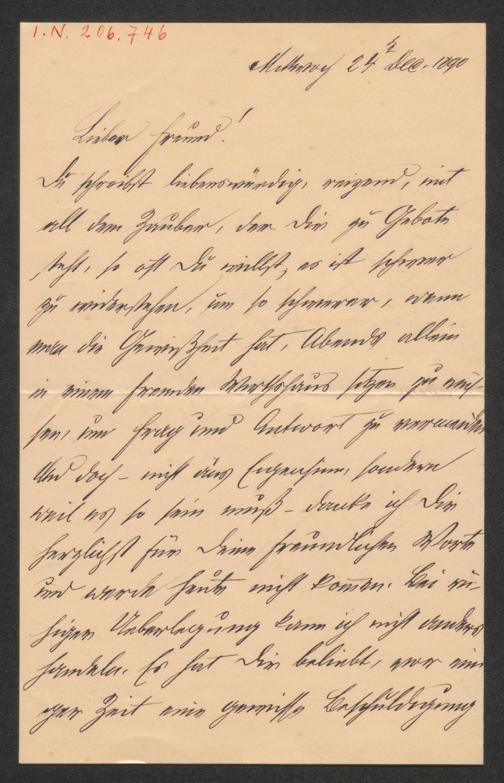 I.N. 206.746
Mittwoch 24t Dec. 1890
Lieber Freund!
Du schreibst liebenswürdig, reizend, mit
all dem Zauber, der Dir zu Gebote
steht, so oft Du willst, es ist schwer
zu widerstehen, um so schwerer, wenn
man die Gewißheit hat, Abends allein
in einem fremden Wirthshaus sitzen zu müs-
sen, um Frag und Antwort zu vermeiden
Und doch – nicht aus Eigensinn, sondern
weil es so sein muß – danke ich Dir
herzlichst für Deine freundlichen Worte
und werde heute nicht kommen. Bei ru-
higer Ueberlegung kann ich nicht anders
handeln. Es hat Dir beliebt, vor eini
ger Zeit eine gewisse Beschuldigung